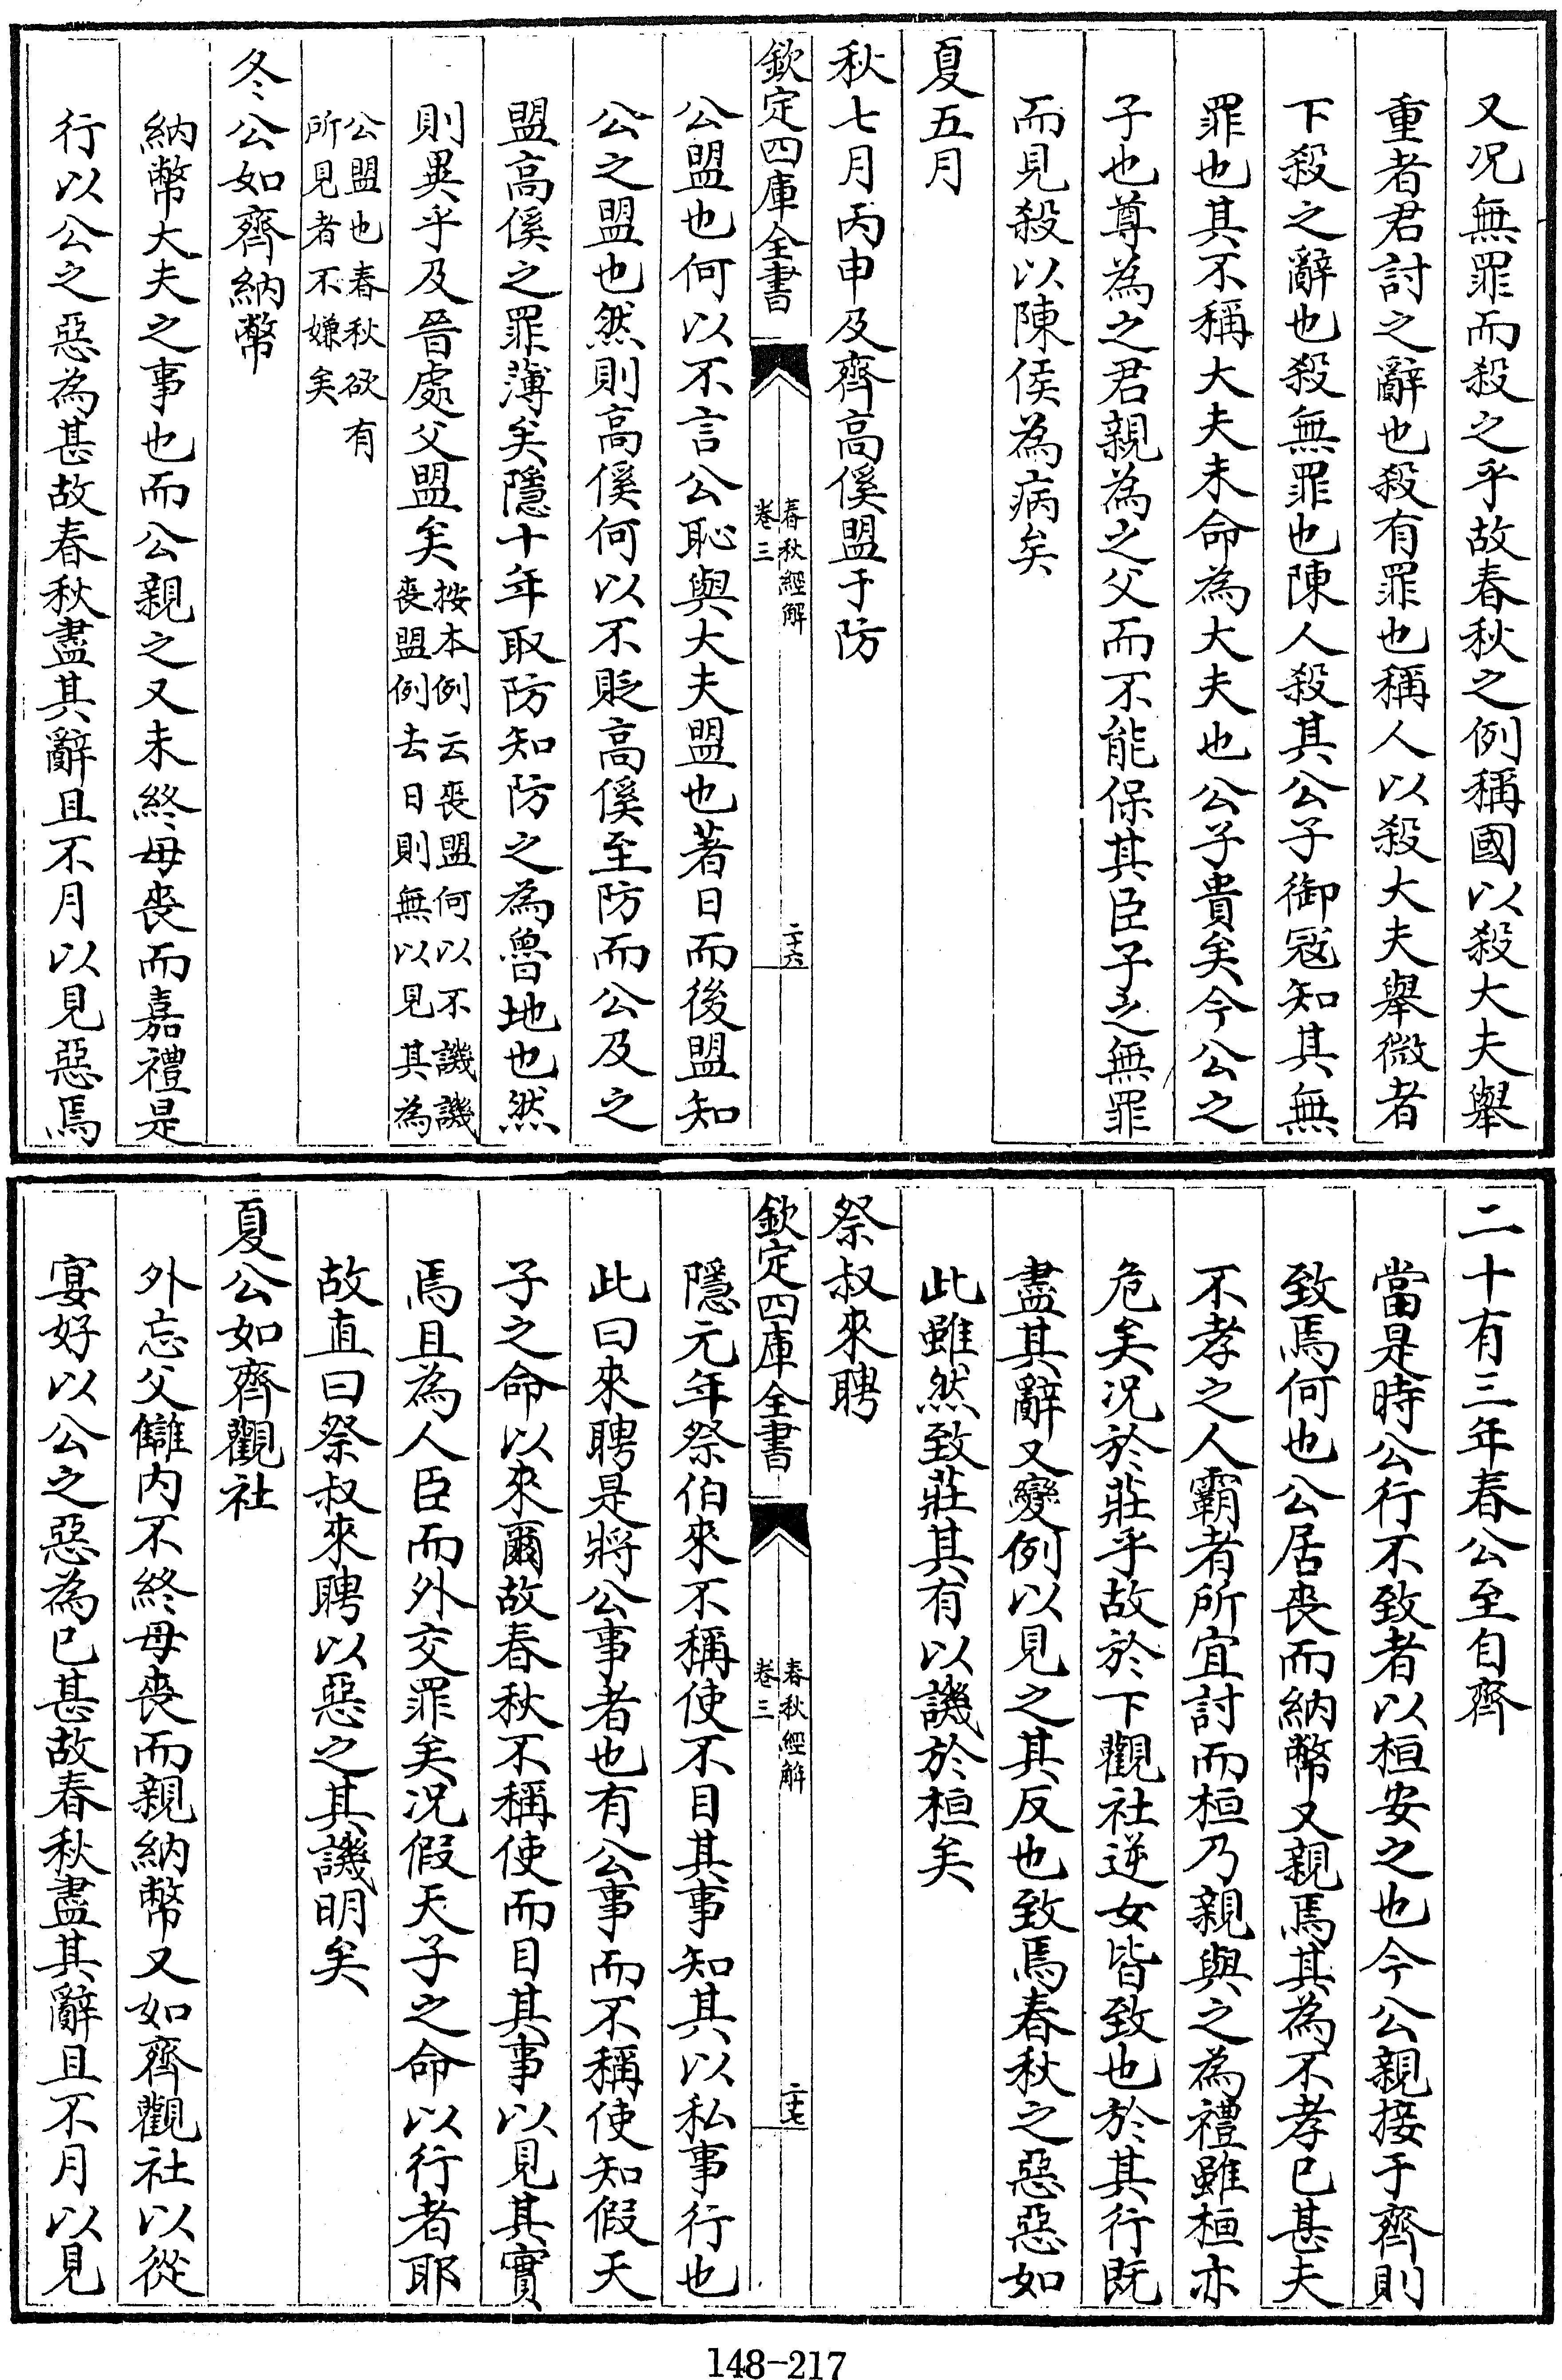 又况無罪而殺之乎故春秋之例稱國以殺大夫舉
重者君討之辭也殺有罪也稱人以殺大夫舉微者
下殺之辭也殺無罪也陳人殺其公子御寇知其無
罪也其不稱大夫未命為大夫也公子貴矣今公之
子也尊為之君親為之父而不能保其臣子之無罪
而見殺以陳侯為病矣
夏五月
秋七月丙申及齊高傒盟于防
欽定四庫全書
春秋經解
卷三
二十六
公盟也何以不言公恥與大夫盟也著日而後盟知
公之盟也然則高傒何以不貶高傒至防而公及之
盟高傒之罪薄矣隱十年取防知防之為魯地也然
則異乎及晉處父盟矣
按本例云喪盟何以不譏譏
喪盟例去日則無以見其為
公盟也春秋欲有
所見者不嫌矣
冬公如齊納幣
納幣大夫之事也而公親之又未終母喪而嘉禮是
行以公之惡為甚故春秋盡其辭且不月以見惡焉
二十有三年春公至自齊
當是時公行不致者以桓安之也今公親接于齊則
致焉何也公居喪而納幣又親焉其為不孝已甚夫
不孝之人霸者所宜討而桓乃親與之為禮雖桓亦
危矣况於莊乎故於下觀社逆女皆致也於其行既
盡其辭又變例以見之其反也致焉春秋之惡惡如
此雖然致莊其有以譏於桓矣
祭叔來聘
欽定四庫全書
春秋經解
卷三
二十七
隱元年祭伯來不稱使不目其事知其以私事行也
此曰來聘是將公事者也有公事而不稱使知假天
子之命以來爾故春秋不稱使而目其事以見其實
焉且為人臣而外交罪矣况假天子之命以行者耶
故直曰祭叔來聘以惡之其譏明矣
夏公如齊觀社
外忘父讎内不終母喪而親納幣又如齊觀社以從
宴好以公之惡為已甚故春秋盡其辭且不月以見
148-217